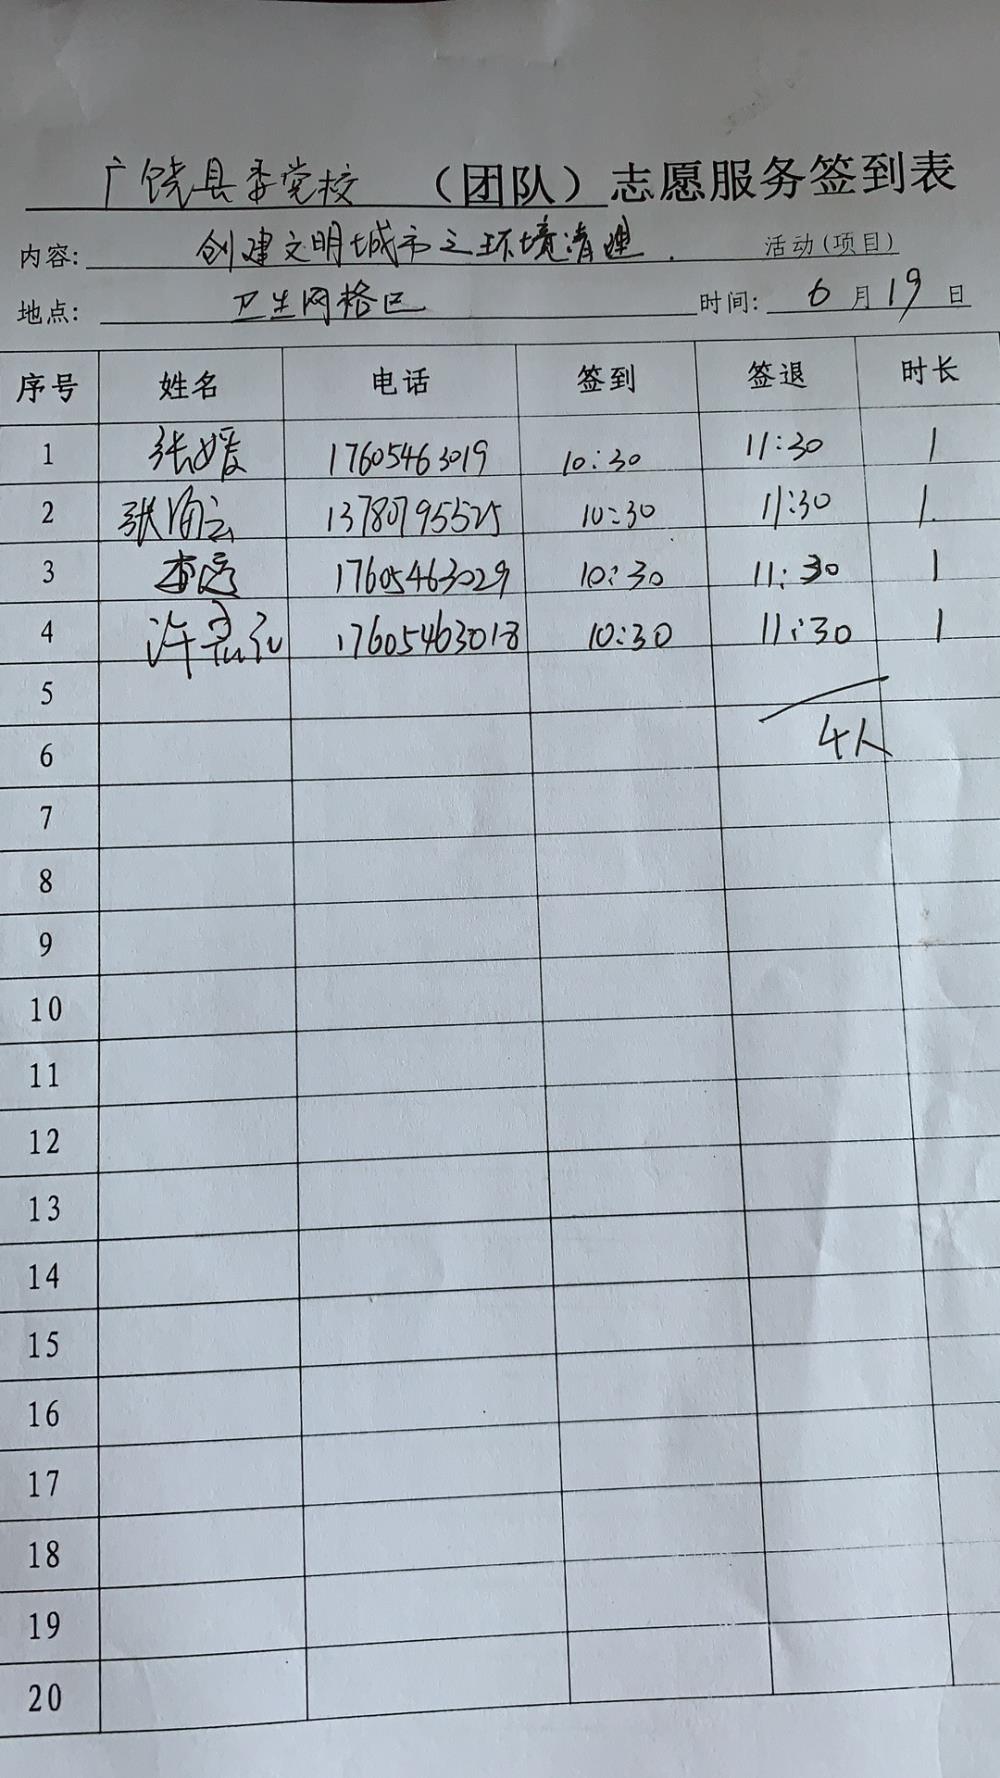 广饶县委党校（团队）志愿服务签到表
内容: 创建文明城市之环境清理. 活动(项目)
地点: 卫生网格区 时间: 6月19日
序号 姓名 电话 签到 签退 时长
1 张媛 17605463019 10:30 11:30 1
2 张 13780795525 10:30 11:30 1.
3 李 17605463029 10:30 11:30 1
4 许 17605463018 10:30 11:30 1
5
6 4人
7
8
9
10
11
12
13
14
15
16
17
18
19
20